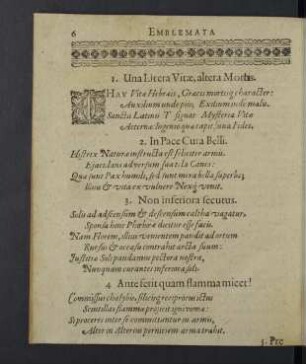 6 EMBLEMATA
1. Una Litera Vitæ, altera Mortis.
THAV Vitæ Hebræis, Græcis mortis character:
Auxilium unde piis, Exitium inde malis.
Sancta Latinis T signat Mysteria Vitæ
Æternæ: Ingens quæ capit una Fides.
2. In Pace Cura Belli.
Histrix Naturæ instructa est feliciter armis,
Ejaculans adversum sua tela Canes:
Qua sunt Pax humilis, sed sunt mera bella superbis;
3. Non inferiora secutus.
Solis ad adscensum & descensum caltha vagatur,
Sponsa hinc Phœbææ dicitur esse facis.
Nam Florem, illius venientem pandit ad ortum
Rursus & occasu contrahit arcta suum:
Justitiæ Soli pandamus pectora nostra,
Nunquam curantes inferiora soli.
4 Ante ferit quam flamma micet!
Commissus chalybs, silici
Scintillas flammæ projicit ignivomæ:
Si proceres inter se committuntur in armis,
Alter in Alterius perniciem arma trahit.
5. Pre